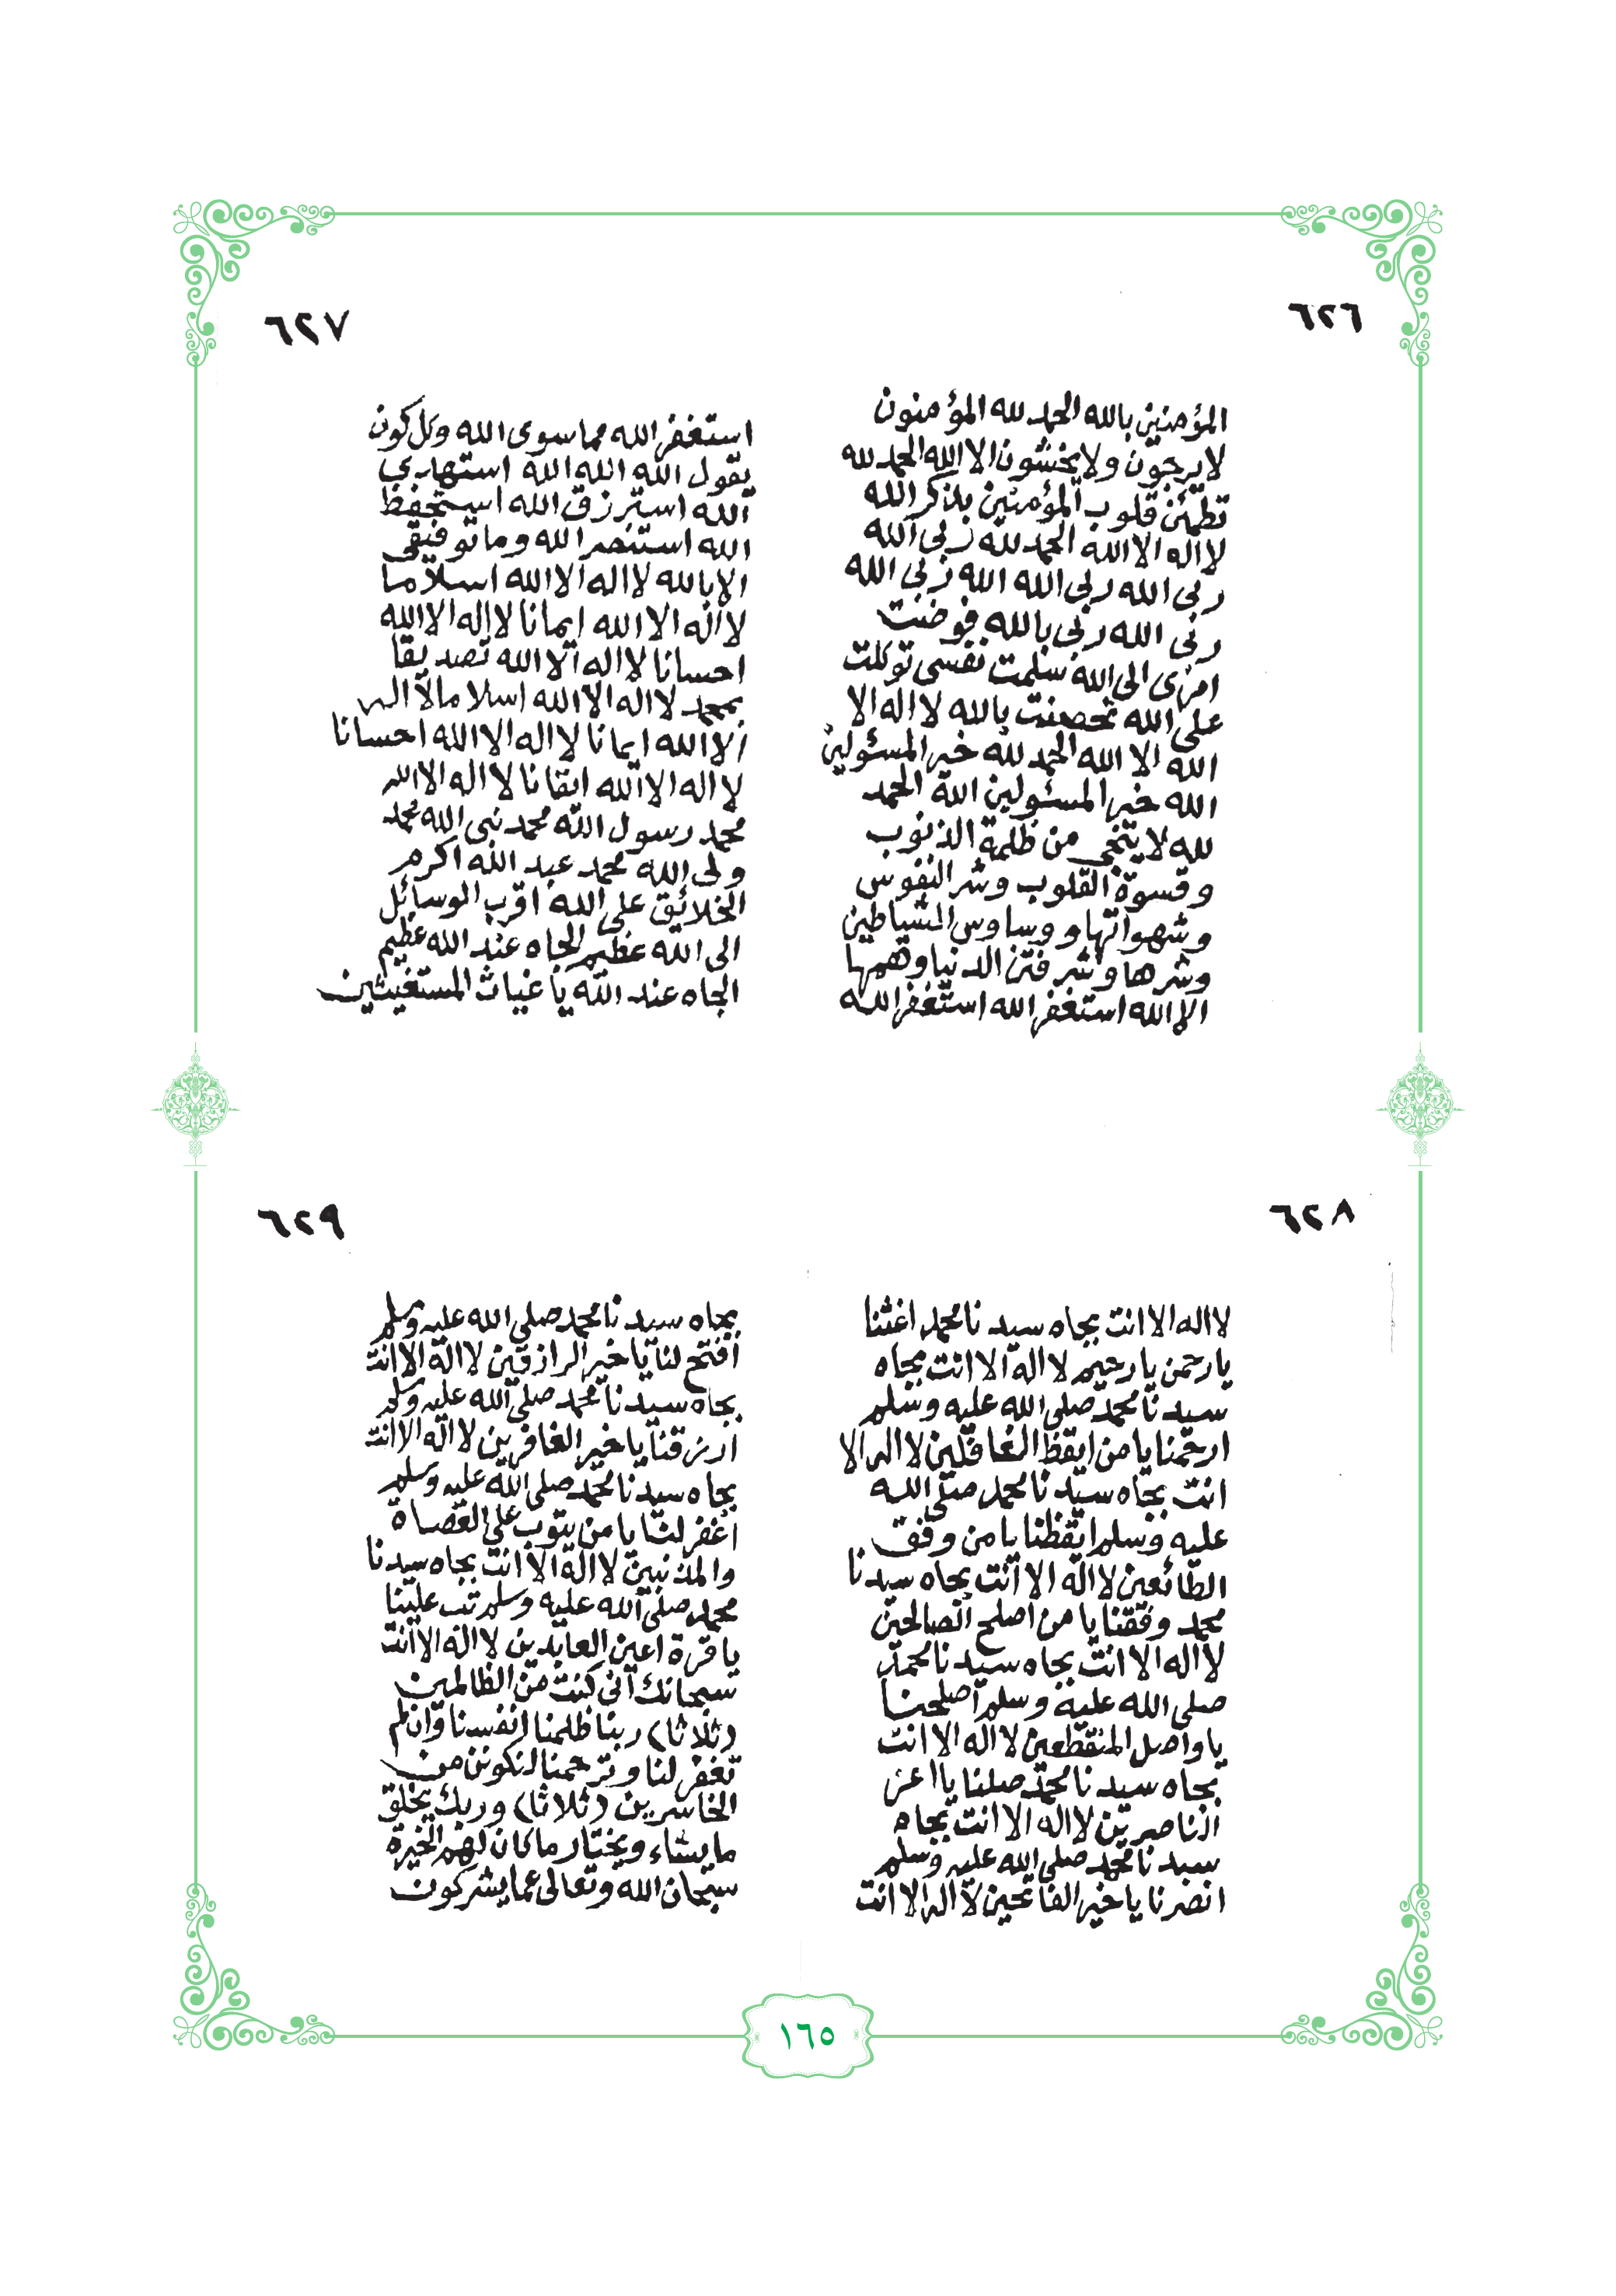 ٦٢٦
المؤمنين بالله الحمد لله المؤمنون
لا يرجون ولا يخشون الا الله الحمد لله
تطمئن قلوب المؤمنين بذكر الله
لا اله الا الله الحمد لله ربى الله
ربى الله ربى الله الله ربى الله
ربى الله ربى بالله فوضت
امرى الى الله سلمت نفسى توكلت
على الله تحصنت بالله لا اله الا
الله الا الله الحمد لله خير المسئولين
الله خير المسئولين الله الحمد
لله لا ينجى من ظلمة الذنوب
وقسوة القلوب وشر النفوس
وشهواتها ووساوس الشياطين
وشرها وشر فتن الدنيا وهمها
الا الله استغفر الله استغفر الله
٦٢٧
استغفر الله مما سوى الله وكل كون
يقول الله الله الله استهدي
الله استرزق الله استحفظ
الله استنصر الله وما توفيقى
الا بالله لا اله الا الله اسلاما
لا اله الا الله ايمانا لا اله الا الله
احسانا لا اله الا الله تصديقا
بمحمد لا اله الا الله اسلاما لا اله
الا الله ايمانا لا اله الا الله احسانا
لا اله الا الله ايقانا لا اله الا الله
محمد رسول الله محمد نبى الله محمد
ولى الله محمد عبد الله اكرم
الخلائق على الله اقرب الوسائل
الى الله عظيم الجاه عند الله عظيم
الجاه عند الله يا غياث المستغيثين
٦٢٨
لا اله الا انت بجاه سيدنا محمد اغثنا
يا رحمن يا رحيم لا اله الا انت بجاه
سيدنا محمد صلى الله عليه وسلم
ارحمنا يا من ايقظ الغافلين لا اله الا
انت بجاه سيدنا محمد صلى الله
عليه وسلم ايقظنا يا من وفق
الطائعين لا اله الا انت بجاه سيدنا
محمد وفقنا يا من اصلح الصالحين
لا اله الا انت بجاه سيدنا محمد
صلى الله عليه وسلم اصلحنا
يا واصل المنقطعين لا اله الا انت
بجاه سيدنا محمد صلنا يا اعز
الناصرين لا اله الا انت بجاه
سيدنا محمد صلى الله عليه وسلم
انصرنا يا خير الفاتحين لا اله الا انت
٦٢٩
بجاه سيدنا محمد صلى الله عليه وسلم
افتح لنا يا خير الرازقين لا اله الا انت
بجاه سيدنا محمد صلى الله عليه وسلم
ارزقنا يا خير الغافرين لا اله الا انت
بجاه سيدنا محمد صلى الله عليه وسلم
اغفر لنا يا من يتوب على العصاة
والمذنبين لا اله الا انت بجاه سيدنا
محمد صلى الله عليه وسلم تب علينا
يا قرة اعين العابدين لا اله الا انت
سبحانك انى كنت من الظالمين
(ثلاثا) ربنا ظلمنا انفسنا وان لم
تغفر لنا وترحمنا لنكونن من
الخاسرين (ثلاثا) وربك يخلق
ما يشاء ويختار ما كان لهم الخيرة
سبحان الله وتعالى عما يشركون
١٦٥